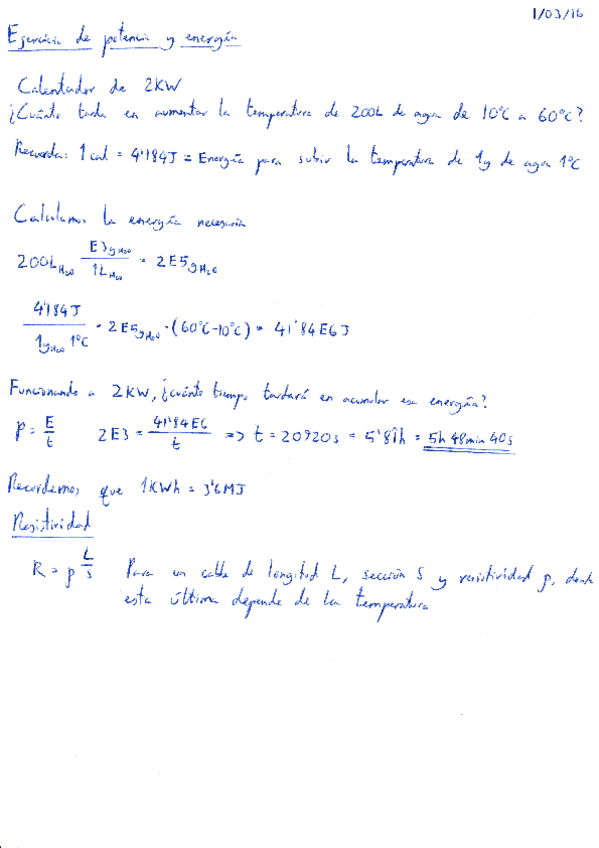 1/03/16
Ejercicio de potencia y energía
Calentador de 2KW
¿Cuánto tarda en aumentar la temperatura de 200L de agua de 10°C a 60°C?
Recuerda: 1 cal = 4'184J = Energía para subir la temperatura de 1g de agua 1°C
Calculamos la energía necesaria
200L_H2O · E3g_H2O / 1L_H2O = 2E5g_H2O
4'184J / 1g_H2O 1°C · 2E5g_H2O · (60°C-10°C) = 41'84E6J
Funcionando a 2KW, ¿cuánto tiempo tardará en acumular esa energía?
P = E/t 2E3 = 41'84E6/t => t = 20920s = 5'81̂h = 5h 48min 40s
Recordemos que 1KWh = 3'6MJ
Resistividad
R = ρ L/S Para un cable de longitud L, sección S y resistividad ρ, donde
esta última depende de la temperatura